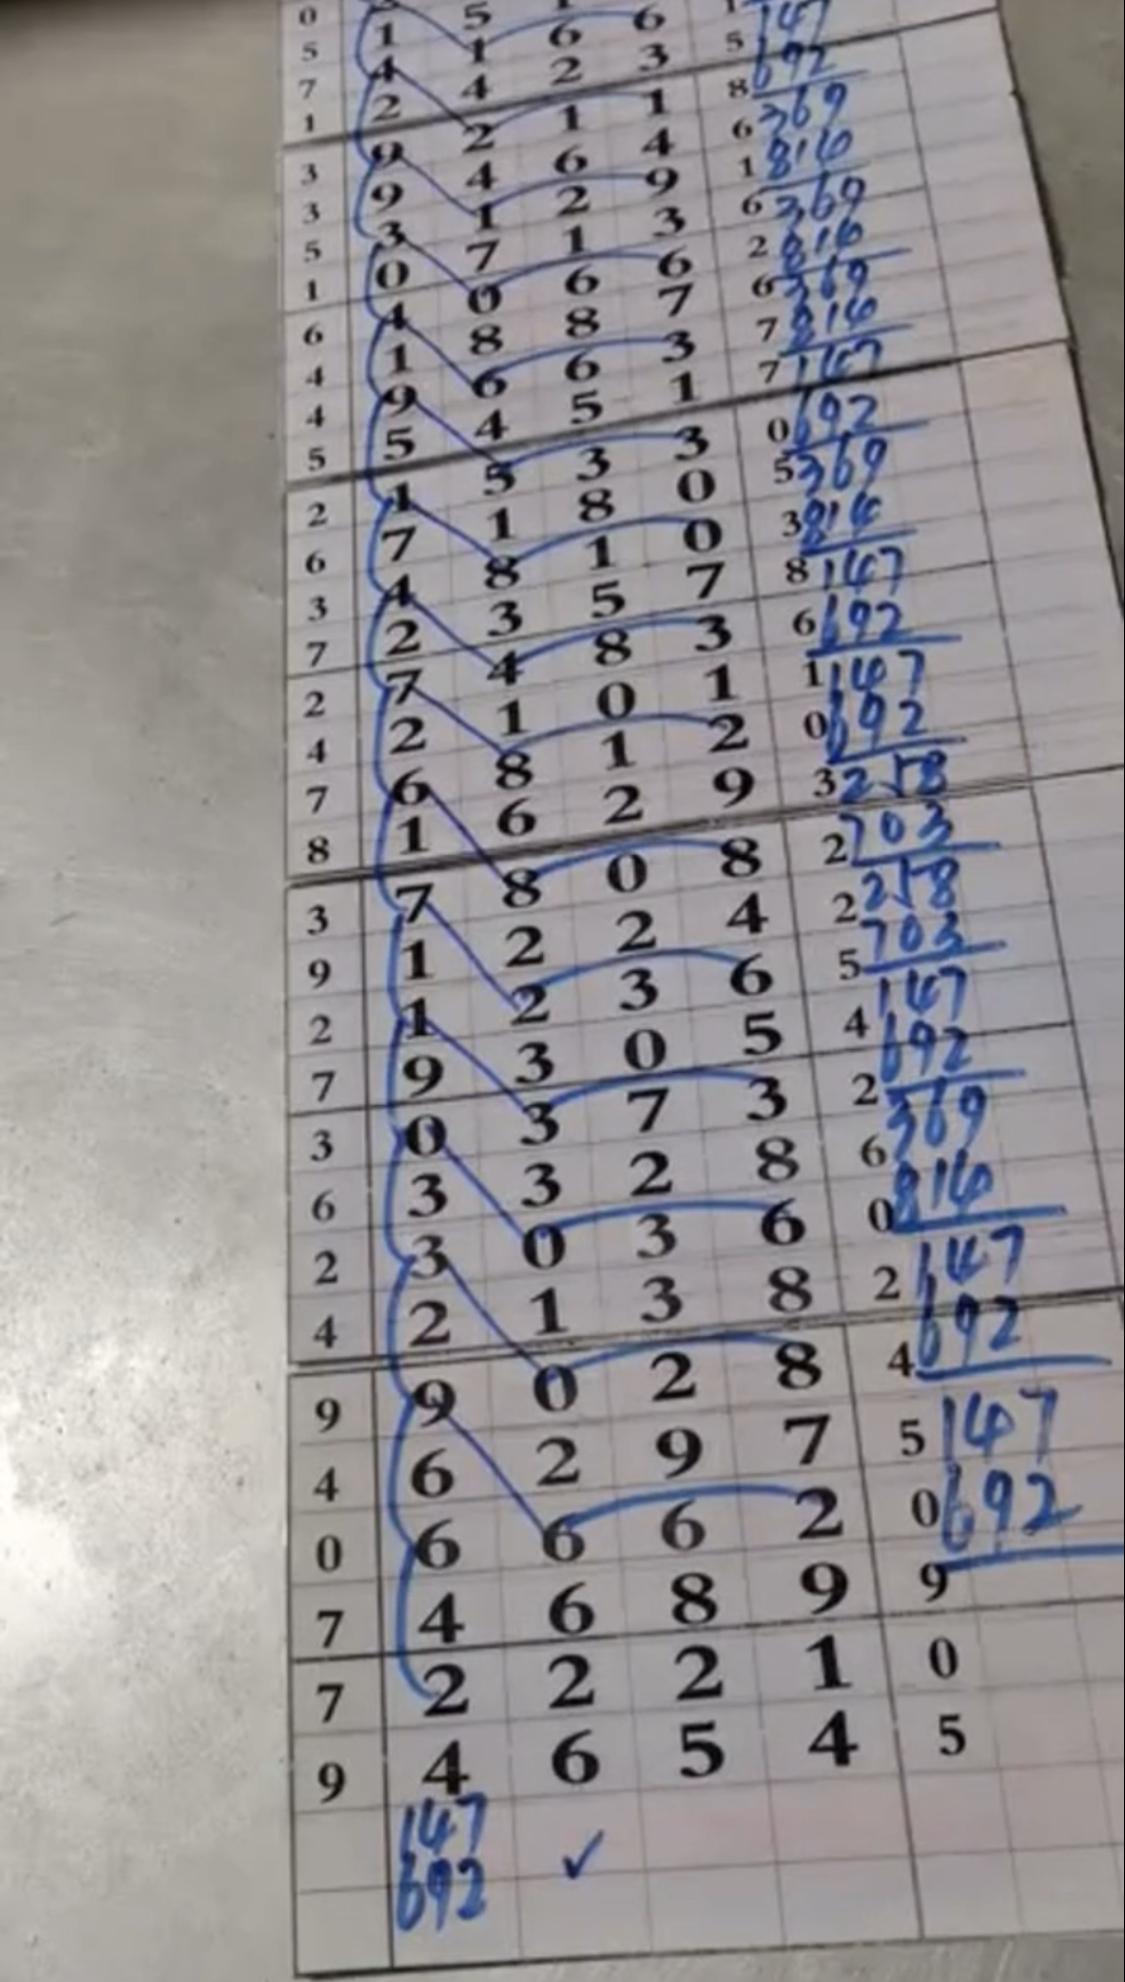 5 1 5 1
7 4 1 6 6 1
1 2 4 2 3 5 147
3 9 2 1 1 8 692
3 9 4 6 4 6 369
5 3 1 2 9 1 814
1 0 7 1 3 6 369
6 4 0 6 6 2 814
4 1 8 8 7 6 369
4 9 6 6 3 7 814
5 5 4 5 1 7 147
2 1 5 3 3 0 692
6 7 1 8 0 5 369
3 4 8 1 0 3 814
7 2 3 5 7 8 147
2 7 4 8 3 6 692
4 2 1 0 1 1 147
7 6 8 1 2 0 692
8 1 6 2 9 3 258
3 7 8 0 8 2 703
9 1 2 2 4 2 258
2 1 2 3 6 5 703
7 9 3 0 5 4 147
3 0 3 7 3 2 692
6 3 3 2 8 6 369
2 3 0 3 6 0 814
4 2 1 3 8 2 147
9 9 0 2 8 4 692
4 6 2 9 7 5 147
0 6 6 6 2 0 692
7 4 6 8 9 9
7 2 2 2 1 0
9 4 6 5 4 5
147
692 ✓